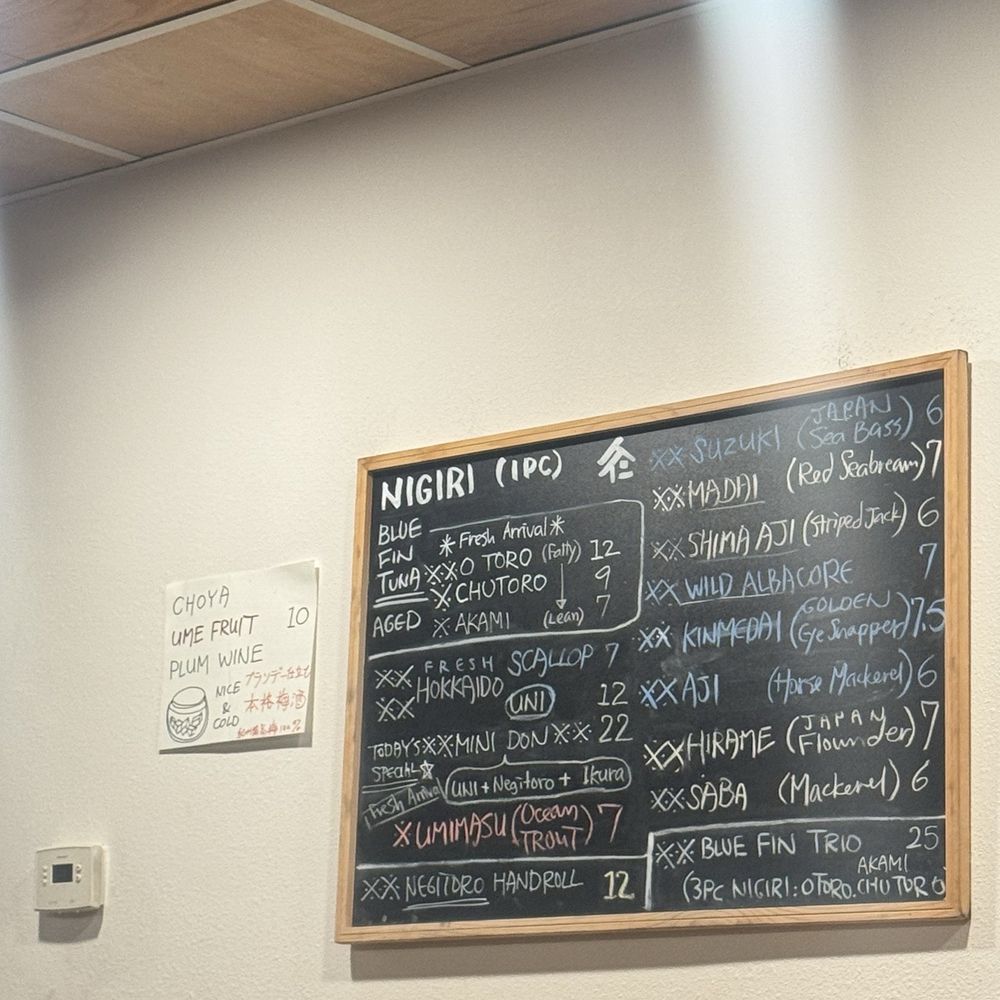 CHOYA
UME FRUIT 10
PLUM WINE
NICE
&
COLD
ブランデー仕立
本格梅酒
NIGIRI (1PC)
BLUE
FIN
TUNA
AGED
*Fresh Arrival*
※※O TORO (Fatty) 12
※CHUTORO 9
※AKAMI (Lean) 7
※※ FRESH SCALLOP 7
HOKKAIDO
※※ UNI 12
TODAY'S ※※MINI DON※※ 22
SPECIAL☆
UNI+Negitoro+Ikura
Fresh Arrival
※UMIMASU (Ocean TROUT) 7
※※NEGITORO HANDROLL 12
※※SUZUKI (JAPAN Sea Bass) 6
※※MADAI (Red Seabream) 7
※※SHIMA AJI (Striped Jack) 6
※※WILD ALBACORE 7
※※KINMEDAI (GOLDEN Eye Snapper) 7.5
※※AJI (Horse Mackerel) 6
※※HIRAME (JAPAN Flounder) 7
※※SABA (Mackerel) 6
※※BLUE FIN TRIO 25
AKAMI
(3PC NIGIRI:OTORO.CHUTORO